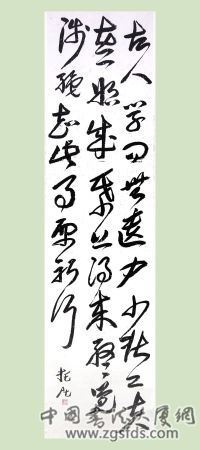 古人学问無遗力少壮工夫
老始成纸上得来终觉
浅绝知此事要躬行
中国书法大厦网
www.zgsfds.com